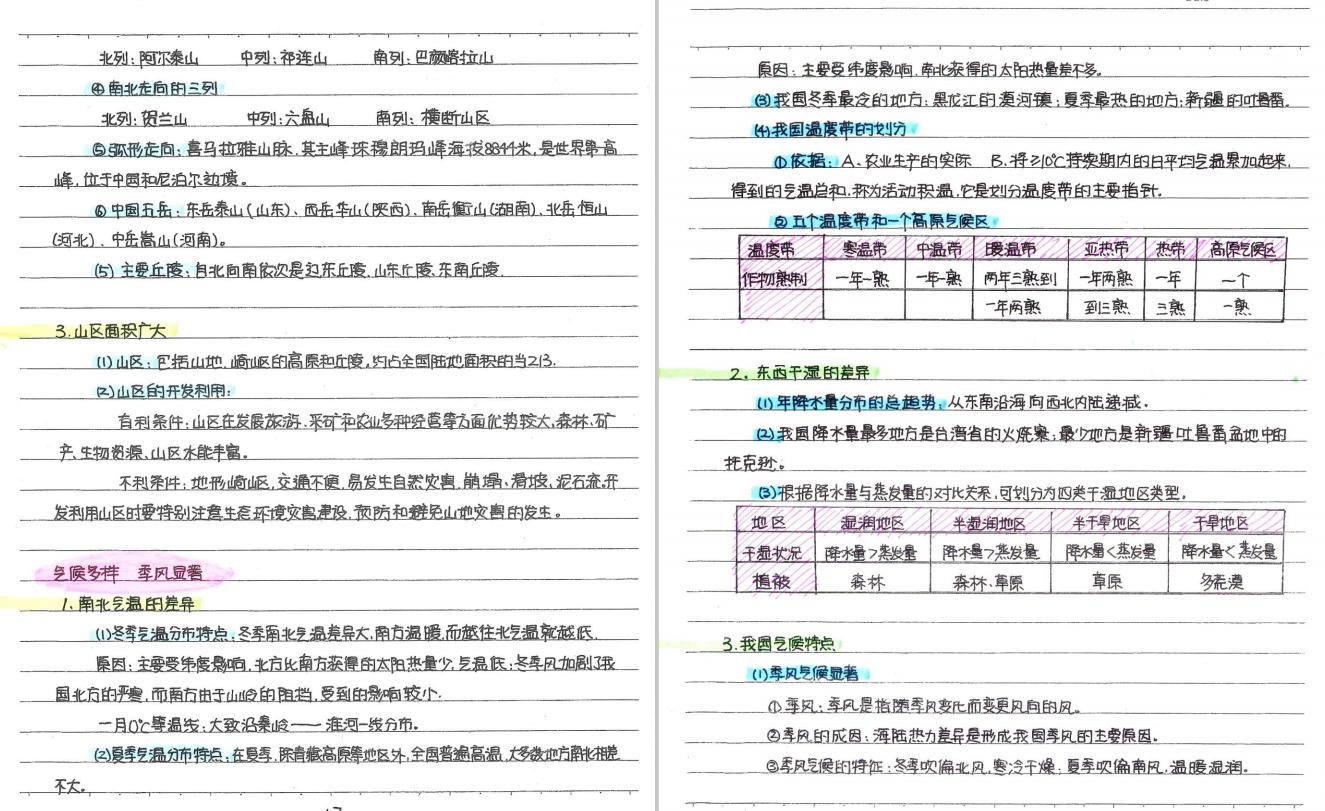 北列：阿尔泰山 中列：祁连山 南列：巴颜喀拉山
④南北走向的三列
北列：贺兰山 中列：六盘山 南列：横断山区
⑤弧形走向：喜马拉雅山脉，其主峰珠穆朗玛峰海拔8844米，是世界第一高
峰，位于中国和尼泊尔边境。
⑥中国五岳：东岳泰山(山东)、西岳华山(陕西)、南岳衡山(湖南)、北岳恒山
(河北)、中岳嵩山(河南)。
(5) 主要丘陵：自北向南依次是辽东丘陵、山东丘陵、东南丘陵
3.山区面积广大
(1)山区：包括山地、崎岖的高原和丘陵，约占全国陆地面积的当2/3.
(2)山区的开发利用：
有利条件：山区在发展旅游、采矿和农业多种经营等方面优势较大，森林、矿
产、生物资源、山区水能丰富。
不利条件：地形崎岖，交通不便，易发生自然灾害，崩塌、滑坡，泥石流.开
发利用山区时要特别注意生态环境灾害建设，预防和避免山地灾害的发生。
气候多样 季风显著
1.南北气温的差异
(1)冬季气温分布特点：冬季南北气温差异大，南方温暖，而越往北气温就越低.
原因：主要受纬度影响，北方比南方获得的太阳热量少，气温低；冬季风加剧了我
国北方的严寒，而南方由于山岭的阻挡，受到的影响较小.
一月0℃等温线：大致沿秦岭——淮河一线分布。
(2)夏季气温分布特点：在夏季，除青藏高原等地区外，全国普遍高温，大多数地方南北相差
不大。
原因：主要受纬度影响，南北获得的太阳热量差不多。
(3)我国冬季最冷的地方：黑龙江的漠河镇；夏季最热的地方：新疆的吐鲁番.
(4)我国温度带的划分
①依据：A、农业生产的实际 B、将≥10℃持续期内的日平均气温累加起来，
得到的气温总和，称为活动积温，它是划分温度带的主要指针.
②五个温度带和一个高原气候区
温度带 寒温带 中温带 暖温带 亚热带 热带 高原气候区
作物熟制 一年一熟 一年一熟 两年三熟到 一年两熟 一年 一个
一年两熟 到三熟 三熟 一熟
2、东西干湿的差异
(1)年降水量分布的总趋势：从东南沿海向西北内陆递减.
(2)我国降水量最多地方是台湾省的火烧寮；最少地方是新疆吐鲁番盆地中的
托克逊。
(3)根据降水量与蒸发量的对比关系，可划分为四类干湿地区类型.
地区 湿润地区 半湿润地区 半干旱地区 干旱地区
干湿状况 降水量>蒸发量 降水量>蒸发量 降水量<蒸发量 降水量<蒸发量
植被 森林 森林、草原 草原
3.我国气候特点
(1)季风气候显著
①季风：季风是指随季风变化而变更风向的风。
②季风的成因：海陆热力差异是形成我国季风的主要原因。
③季风气候的特征：冬季吹偏北风，寒冷干燥；夏季吹偏南风，温暖湿润.